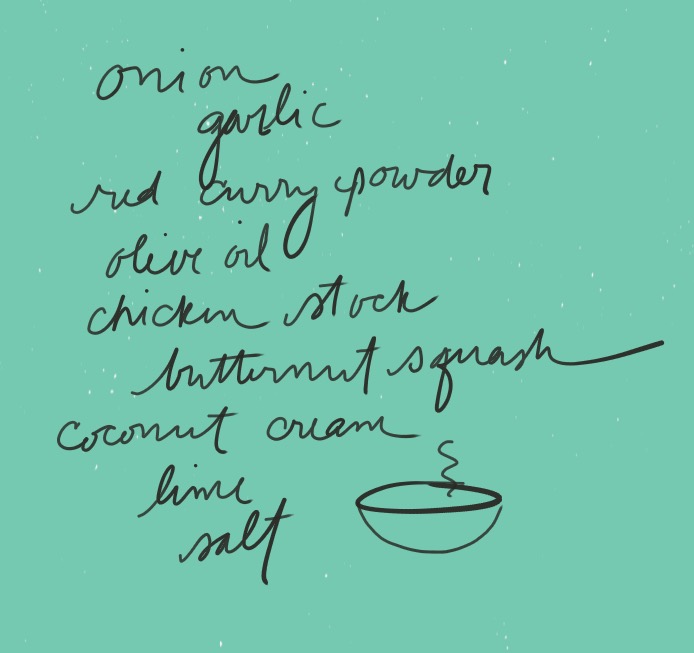 onion
garlic
red curry powder
olive oil
chicken stock
butternut squash
coconut cream
lime
salt